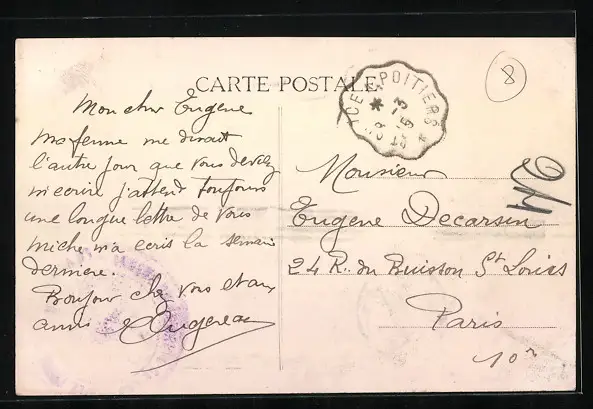 CARTE POSTALE
8
POITIERS
Mon cher Eugene
Ma femme me disait
l'autre jour que vous deviez
m'ecrire j'attend toujours
une longue lettre de vous
Miche m'a ecris la semaine
derniere.
Bonjour chez vous et aux
amis Augereau
Monsieur
Eugene Decarsin
24 R. du Buisson St Louis
Paris
10